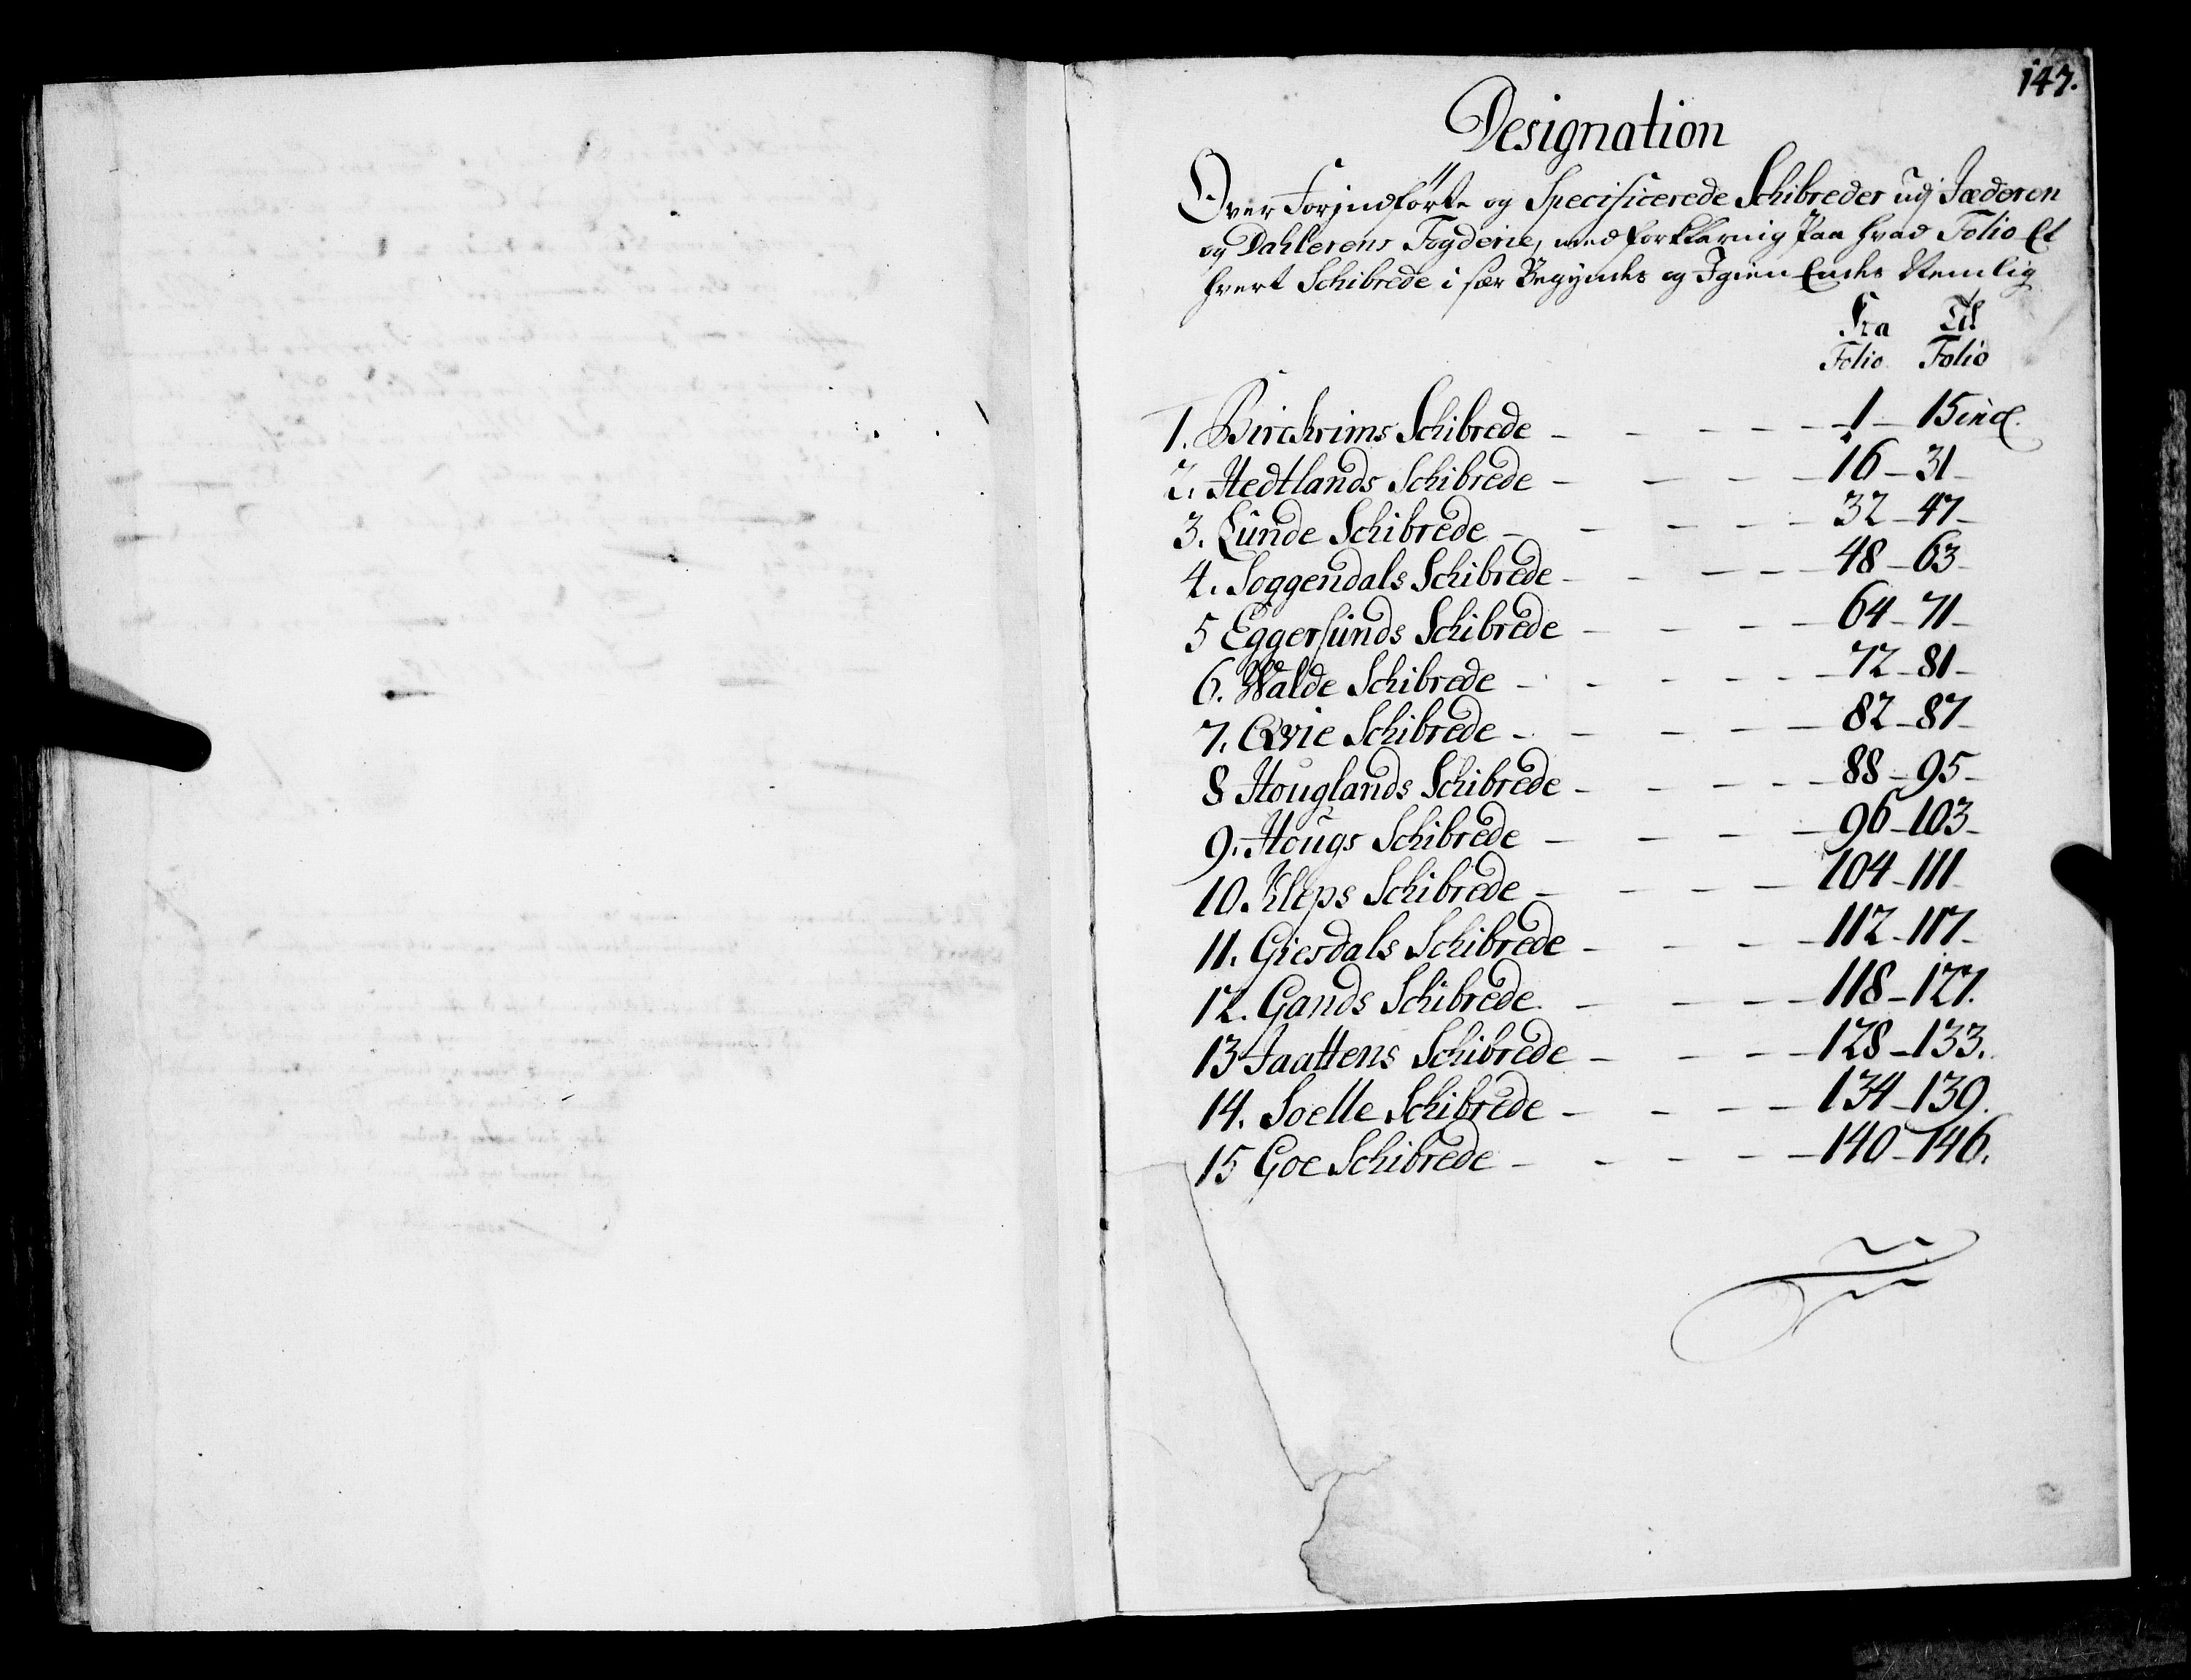 147.
Designation
Over Forindførte og Specificerede Schibreder udj Jæderen
og Dahlerens Fogderie, med forklaring Paa hvad Folio Et
hvert Schibrede i sær Begyndes og Igien Endes Nemlig
Fra Til
Folio Folio
1. Birckrims Schibrede - - - - - 1 - 15 incl.
2. Hedtlands Schibrede - - - - 16 - 31 -
3. Lunde Schibrede - - - - - 32 - 47 -
4. Soggendals Schibrede - - - - - 48 - 63 -
5 Eggersunds Schibrede - - - - 64 - 71 -
6. Walde Schibrede - - - - - - 72 - 81 -
7. Qvie Schibrede - - - - - 82 - 87 -
8 Houglands Schibrede - - - - - 88 - 95 -
9. Hougs Schibrede - - - - 96 - 103 -
10. Kleps Schibrede - - - - 104 - 111 -
11. Giesdals Schibrede - - - - 112 - 117 -
12. Gands Schibrede - - - - 118 - 127.
13 Jaattens Schibrede - - - - 128 - 133.
14. Soelle Schibrede - - - - 134 - 139.
15 Goe Schibrede - - - - - 140 - 146.